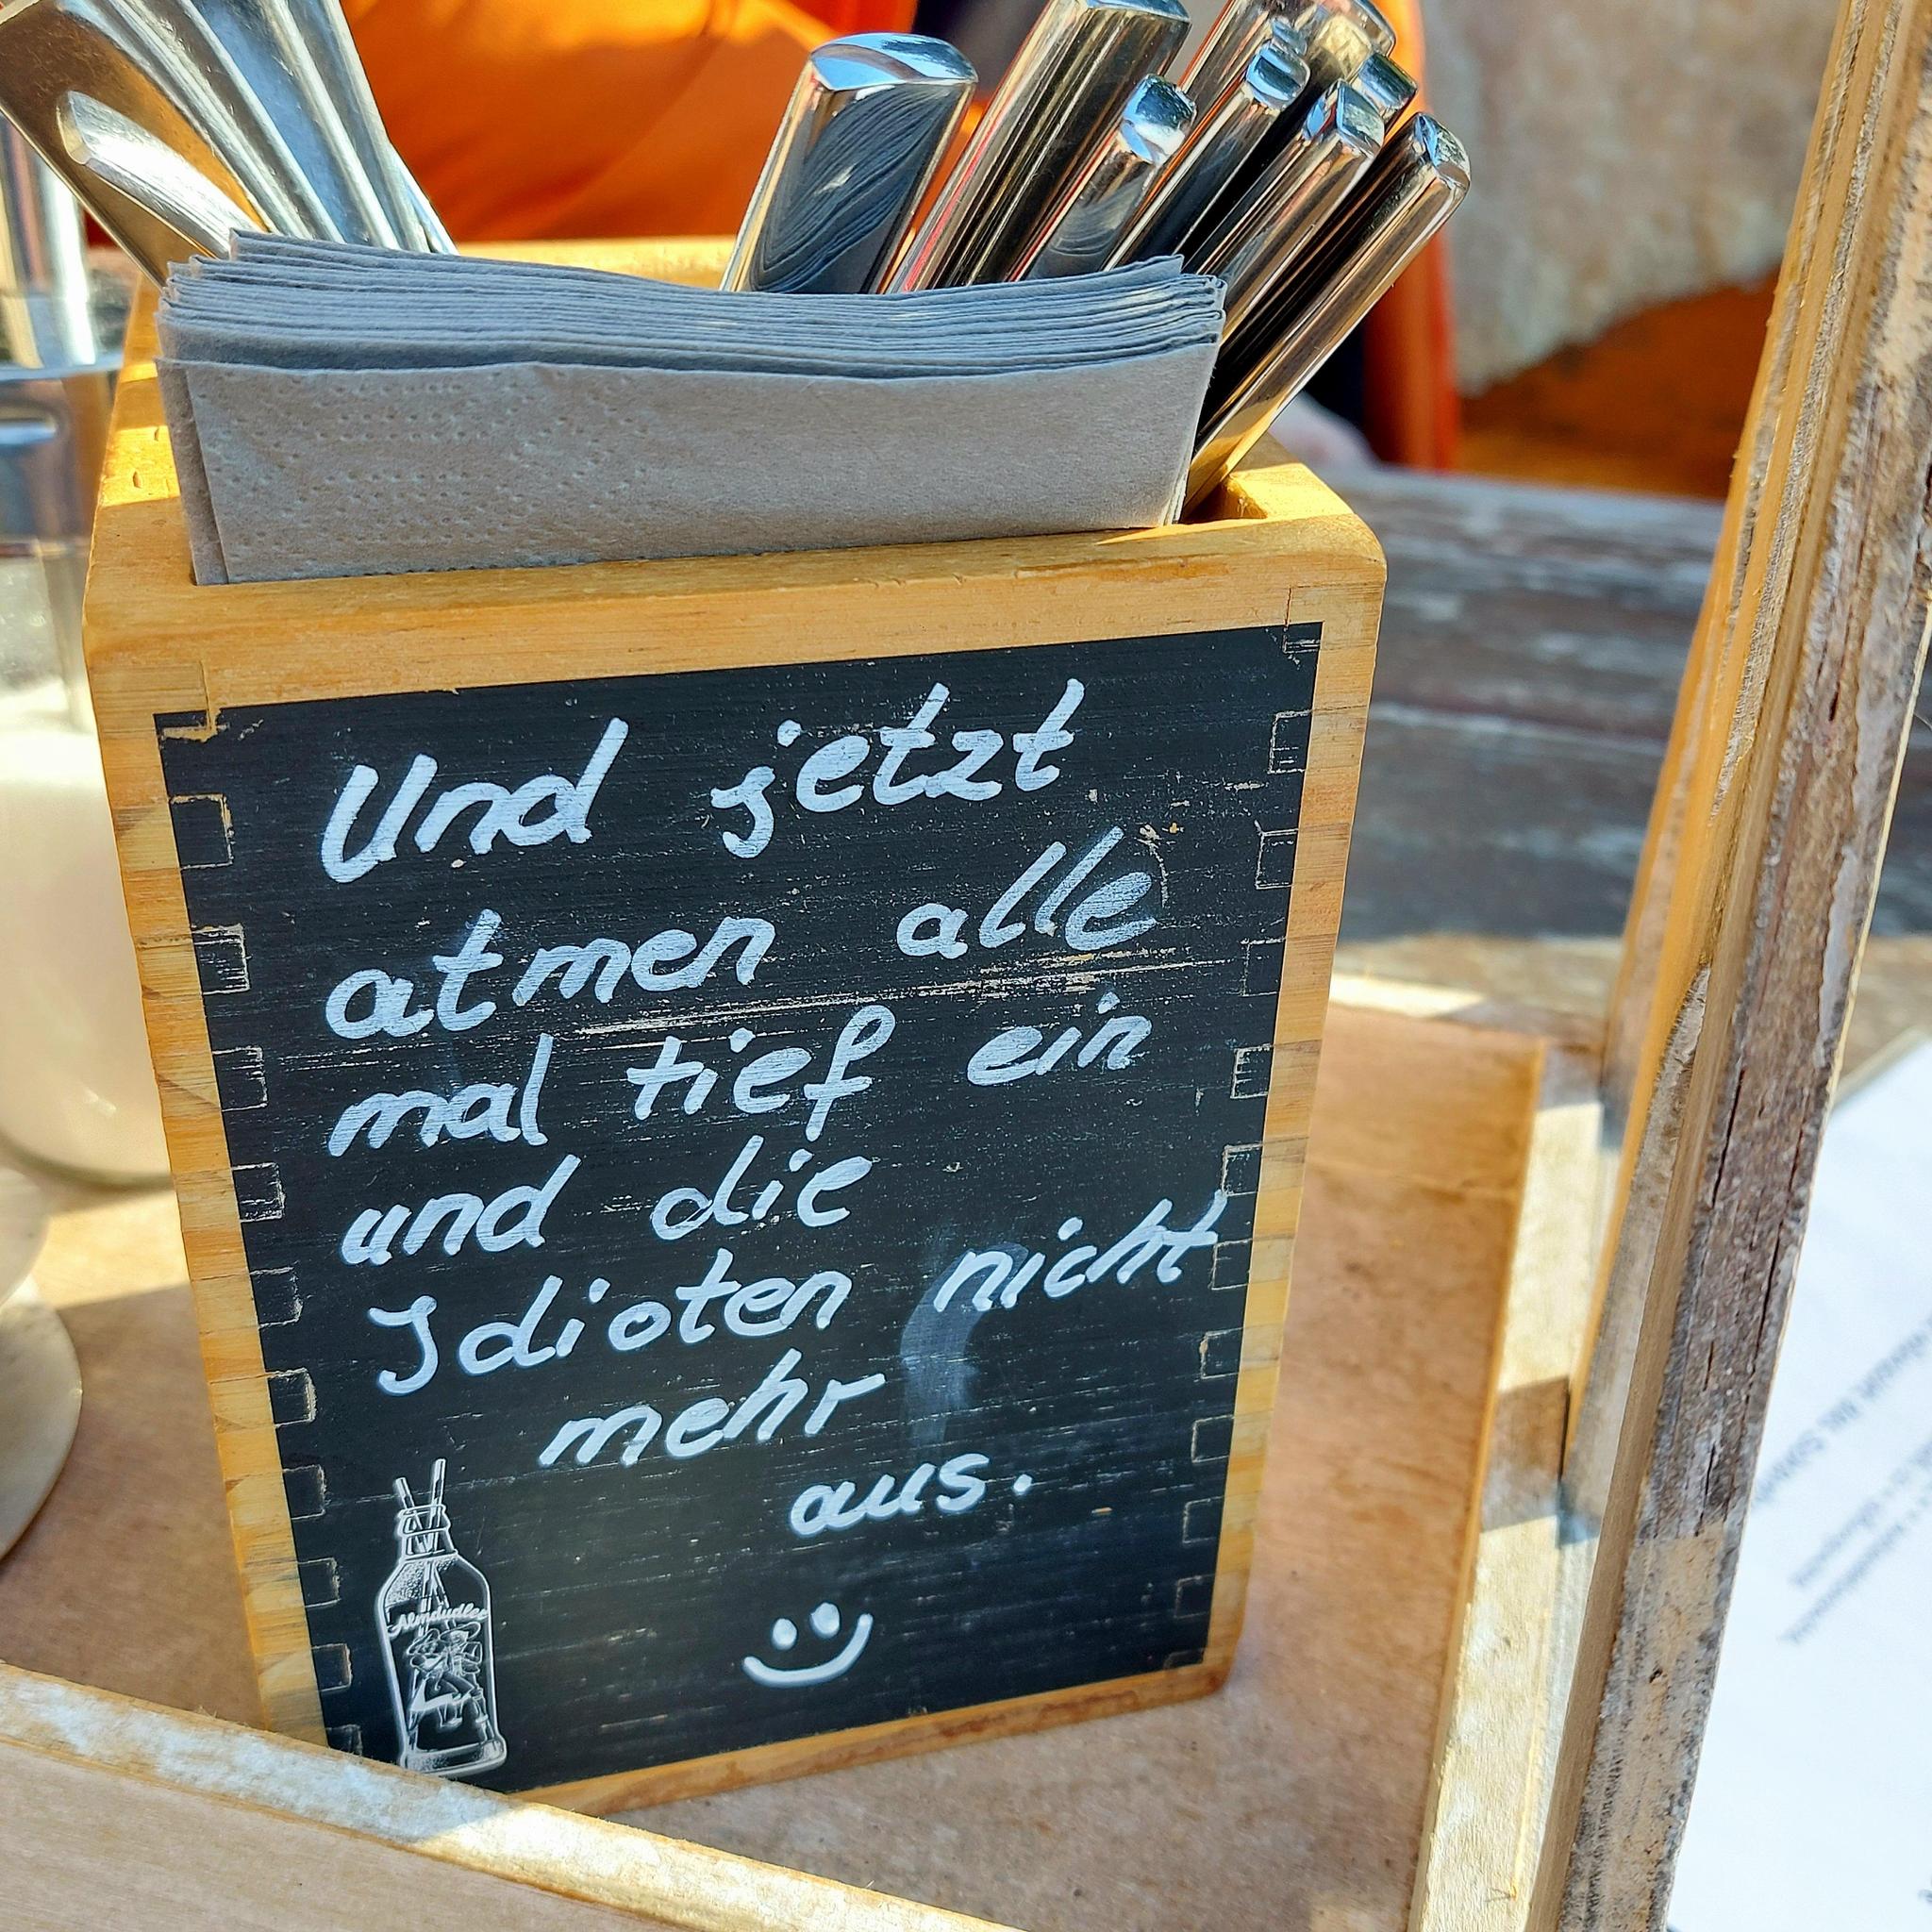 Und jetzt
atmen alle
mal tief ein
und die
Idioten nicht
mehr
aus.
Almdudler